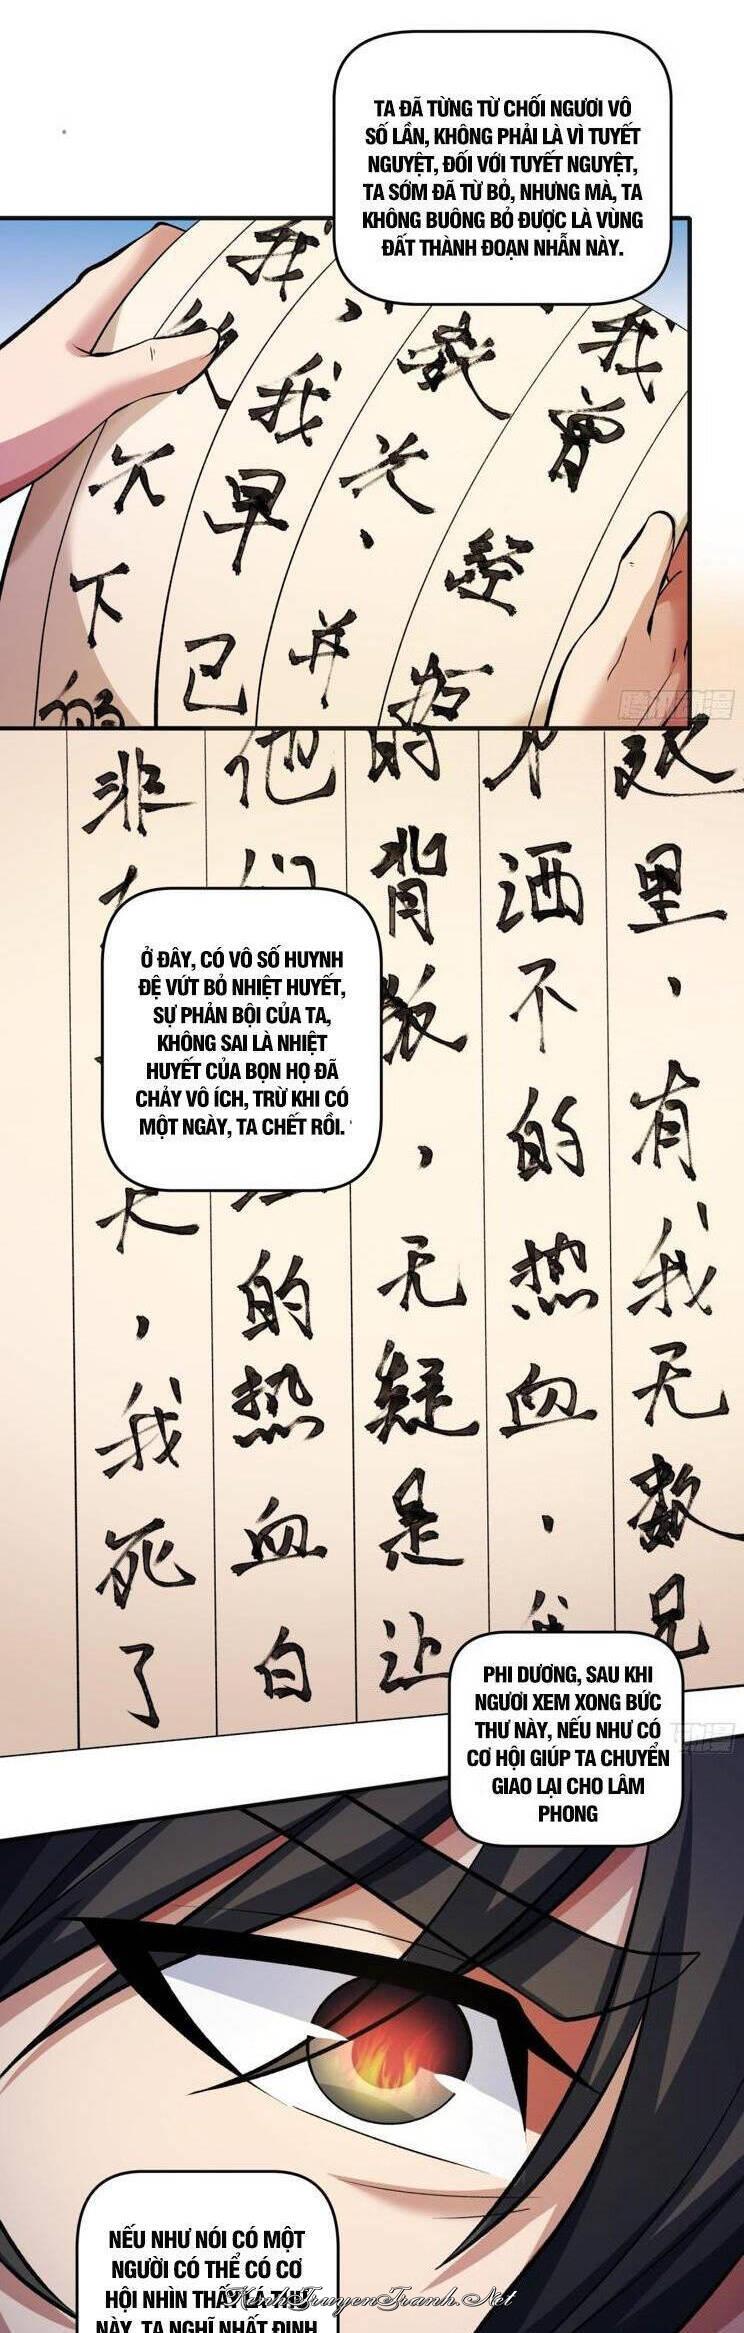 TA ĐÃ TỪNG TỪ CHỐI NGƯƠI VÔ
SỐ LẦN, KHÔNG PHẢI LÀ VÌ TUYẾT
NGUYỆT, ĐỐI VỚI TUYẾT NGUYỆT,
TA SỚM ĐÃ TỪ BỎ, NHƯNG MÀ, TA
KHÔNG BUÔNG BỎ ĐƯỢC LÀ VÙNG
ĐẤT THÀNH ĐOẠN NHẪN NÀY.
我曾经
我次、并
我早已
不下的
腾讯动漫
这里、有我无数兄
不洒不的热血、我
的背叛,无疑是让
他们
的热血白
非
天,我死了
Ở ĐÂY, CÓ VÔ SỐ HUYNH
ĐỆ VỨT BỎ NHIỆT HUYẾT,
SỰ PHẢN BỘI CỦA TA,
KHÔNG SAI LÀ NHIỆT
HUYẾT CỦA BỌN HỌ ĐÃ
CHẢY VÔ ÍCH, TRỪ KHI CÓ
MỘT NGÀY, TA CHẾT RỒI.
PHI DƯƠNG, SAU KHI
NGƯƠI XEM XONG BỨC
THƯ NÀY, NẾU NHƯ CÓ
CƠ HỘI GIÚP TA CHUYỂN
GIAO LẠI CHO LÂM
PHONG
动漫
NẾU NHƯ NÓI CÓ MỘT
NGƯỜI CÓ THỂ CÓ CƠ
HỘI NHÌN THẤY LÁ THƯ
NÀY, TA NGHĨ NHẤT ĐỊNH
KenhTruyenTranh.Net